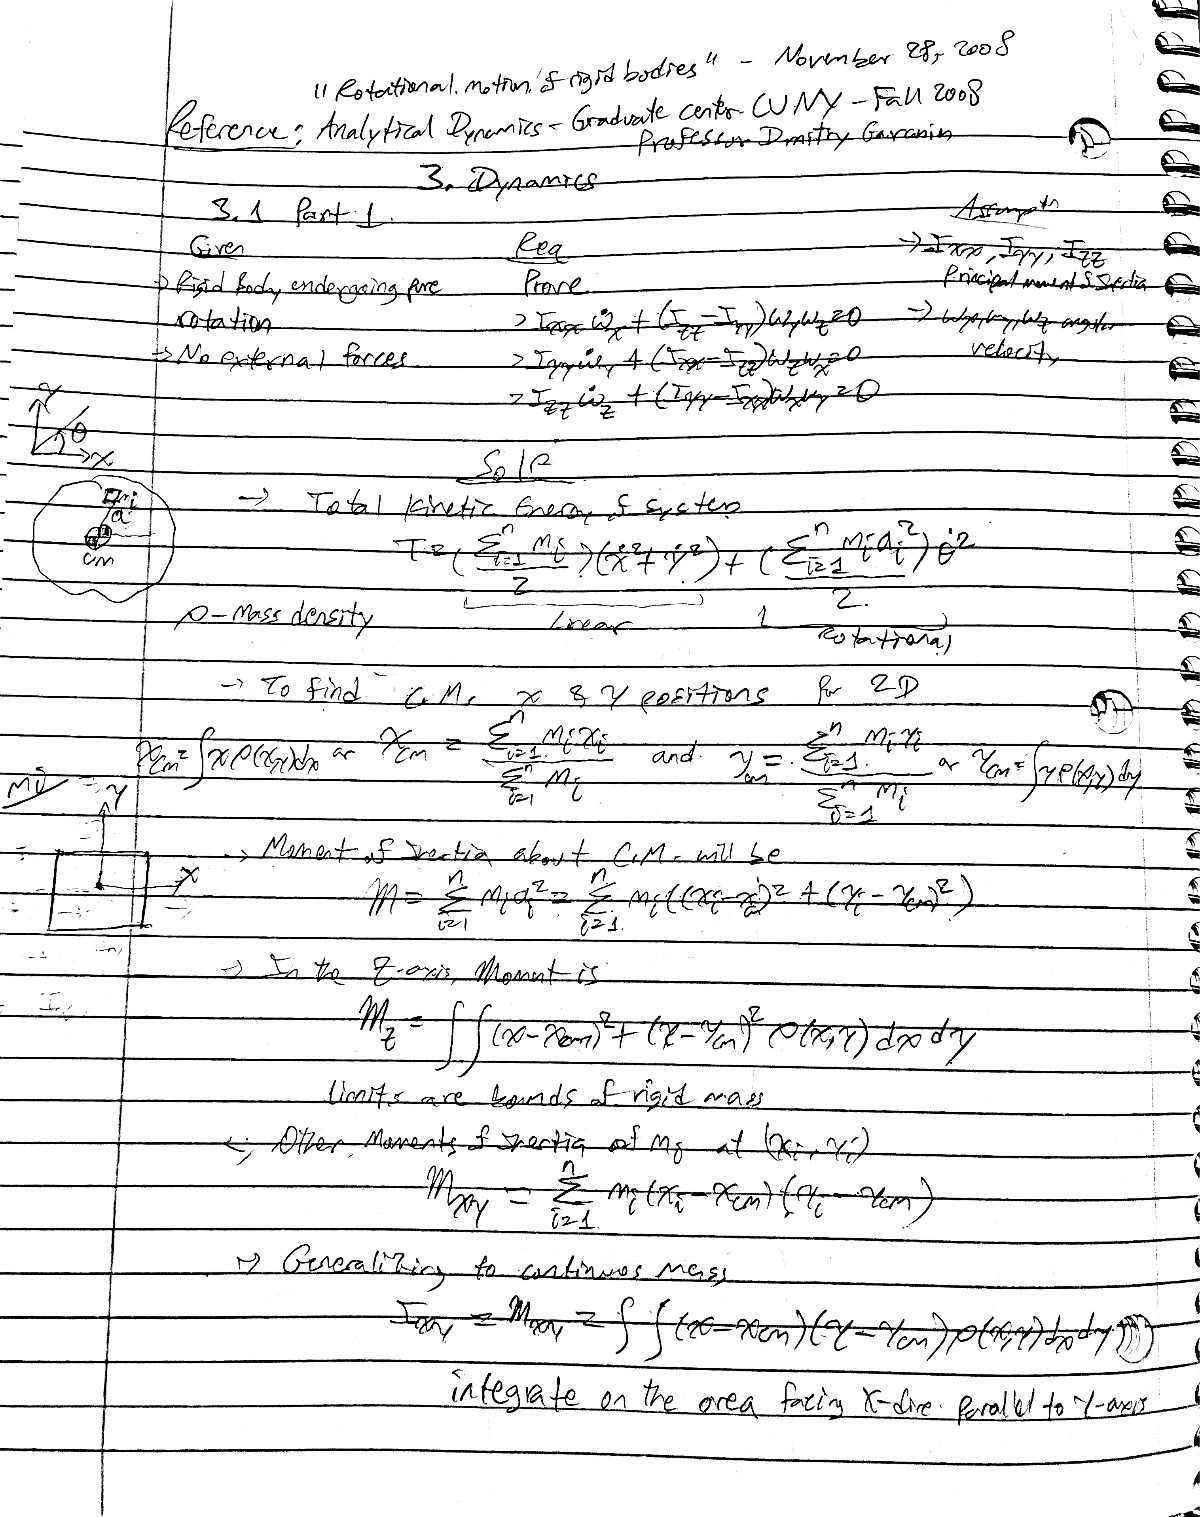 "Rotational motion of rigid bodies" - November 28, 2008
Reference: Analytical Dynamics - Graduate center CUNY - Fall 2008
Professor Dmitry Garanin
3. Dynamics
3.1 Part 1.
Given Req Assumptn
→ Rigid Body undergoing pure rotation
→ No external forces.
Prove
> Ixx ω̇x + (Izz - Iyy)ωyωz = 0
> Iyy ω̇y + (Ixx - Izz)ωzωx = 0
> Izz ω̇z + (Iyy - Ixx)ωxωy = 0
→ Ixx, Iyy, Izz
Principal moment of Inertia
→ ωx, ωy, ωz angular velocity
y
θ
x
mi
a
cm
Soln
→ Total Kinetic Energy of system
T = (Σ_{i=1}^{n} mi / 2)(ẋ² + ẏ²) + (Σ_{i=1}^{n} mi ai² / 2) θ̇²
Linear
Rotational
ρ - Mass density
→ To find C.M. x & y positions for 2D
xcm = ∫xρ(x,y)dx or xcm = Σ_{i=1}^{n} mi xi / Σ_{i=1}^{n} mi and ycm = Σ_{i=1}^{n} mi yi / Σ_{i=1}^{n} mi or ycm = ∫yρ(x,y)dy
y
x
→ Moment of Inertia about C.M. will be
M = Σ_{i=1}^{n} mi ai² = Σ_{i=1}^{n} mi((xi - xcm)² + (yi - ycm)²)
→ In the Z-axis, Moment is
Mz = ∫∫(x - xcm)² + (y - ycm)² ρ(x,y) dx dy
limits are bounds of rigid mass
→ Other Moments of Inertia of mi at (xi, yi)
Mxy = Σ_{i=1}^{n} mi(xi - xcm)(yi - ycm)
→ Generalizing to continuos mass
Ixy = Mxy = ∫∫(x - xcm)(y - ycm)ρ(x,y)dxdy
integrate on the area facing X-dire. Parallel to Y-axis